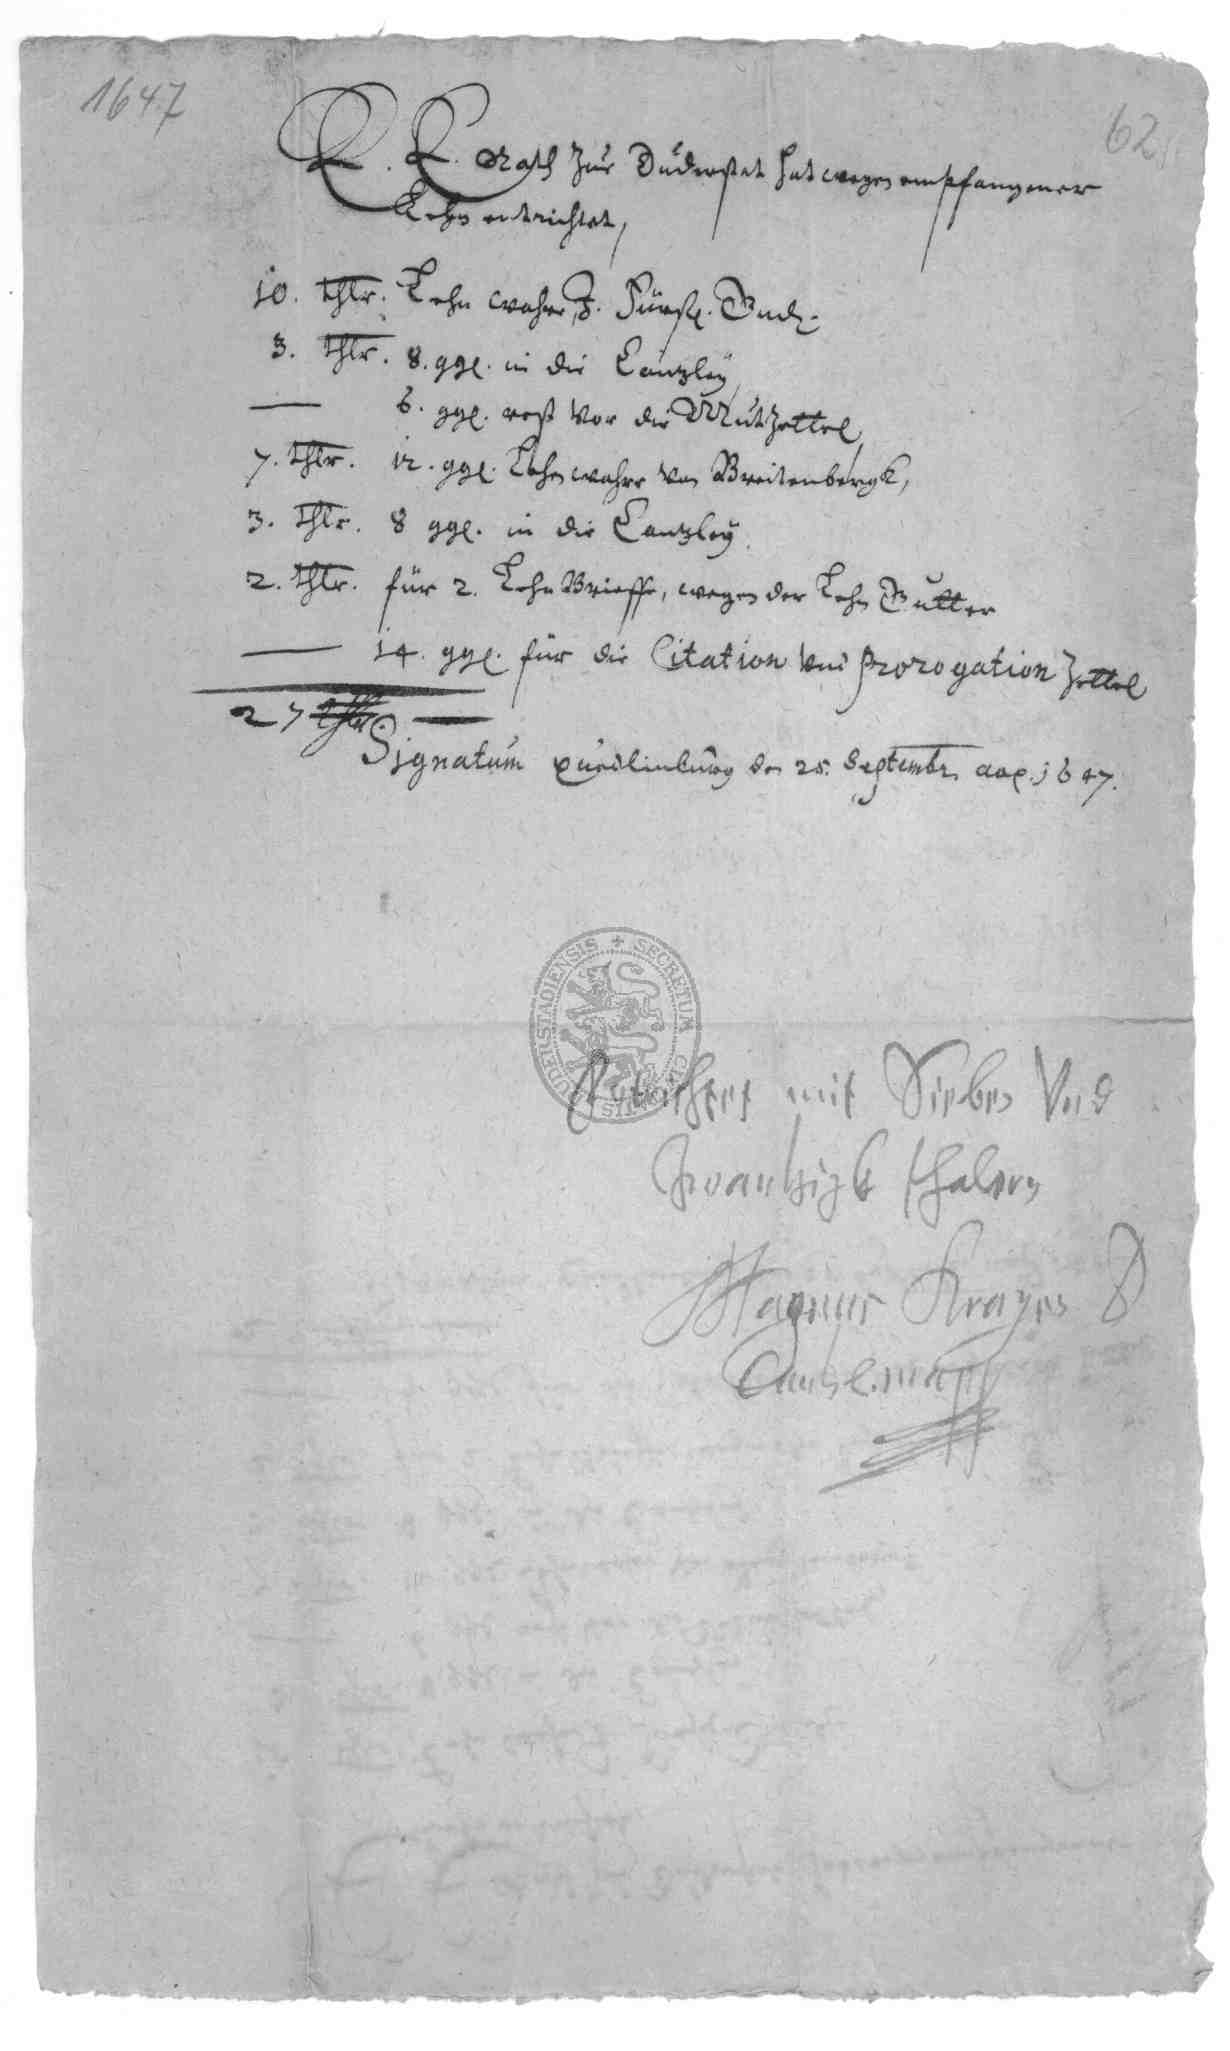 1647
62
E. E. Rath zur Duderstat hat wegen empfangener
Lehn entrichtet,
10. thlr. Lehn wahre, F. Fürstl. Gnd.
3. thlr. 8. ggl. in die Cantzley,
— 6. ggl. rest vor die Muthzettel,
7. thlr. 12. ggl. Lehnwahre von Breitenbergk,
3. thlr. 8 ggl. in die Cantzley.
2. thlr. für 2. Lehn Brieffe, wegen der Lehn Gutter
— 14. ggl. für die Citation und Prorogation Zettel
27 thlr. —
Signatum Quedlinburg den 25. Septembr. 1647.
DUDERSTADIENSIS + SECRETUM
mit Sieben Und
zwantzigk thalern
Magnus D